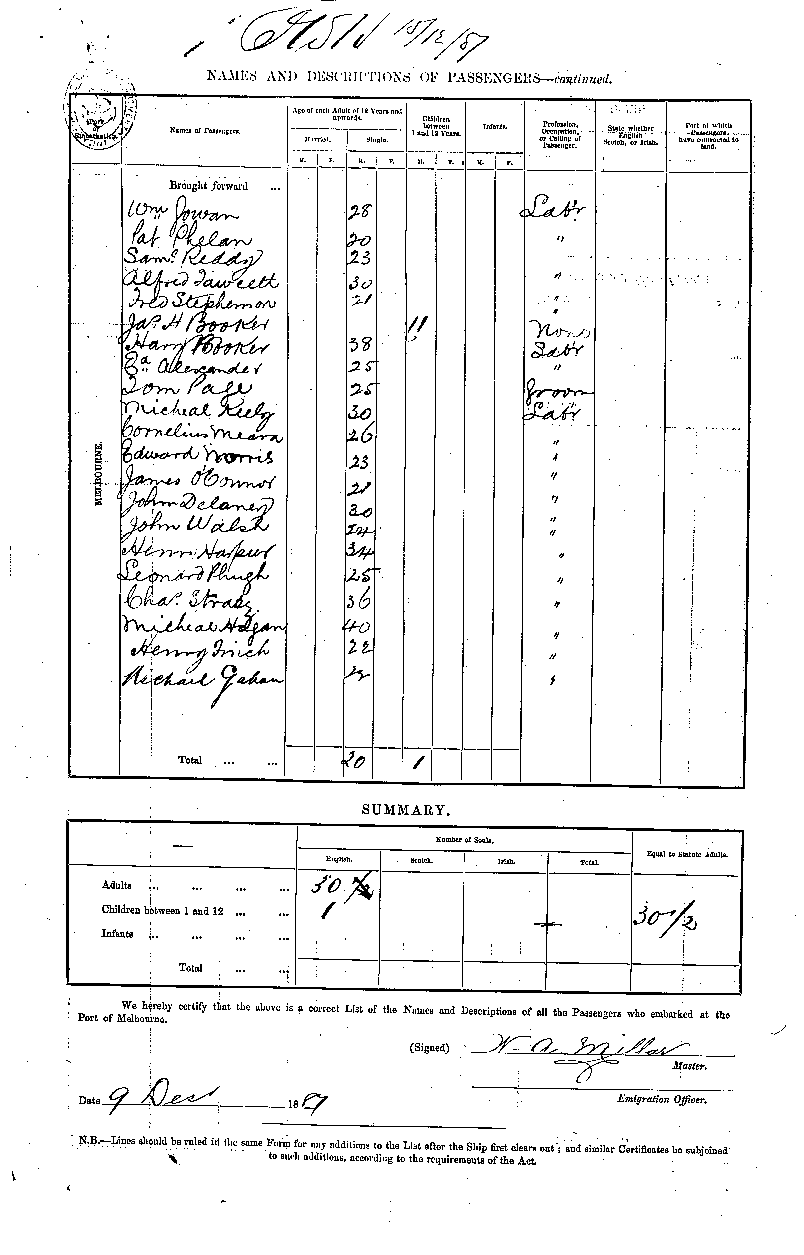 15/12/87
NAMES AND DESCRIPTIONS OF PASSENGERS—continued.
Names of Passengers.
Age of each Adult of 12 Years and upwards.
Married. Single.
Children between 1 and 12 Years.
Infants.
Profession, Occupation, or Calling of Passenger.
State whether English Scotch, or Irish.
Port at which Passengers have contracted to land.
M. F. M. F. M. F. M. F.
MELBOURNE.
Brought forward ...
Wm Jowan 28 Labr
Pat Phelan 20 "
Saml Reddy 23
Alfred Fawcett 30 "
Fred Stephenson 21 "
Jas H Booker 11 None
Harry Booker 38 Labr
Alexander 25 "
Tom Page 25 Groom
Micheal Kiely 30 Labr
Cornelius Meara 26 "
Edward Norris 23 "
James O'Connor 21 "
John Delaney 30 "
John Walsh 24 "
Henri Harpur 34 "
Leonard 25 "
Chas. 36 "
Micheal Hogan 40 "
Henry 22 "
Michael Gahan "
Total ... ... 20 1
SUMMARY.
Number of Souls.
English. Scotch. Irish. Total.
Equal to Statute Adults.
Adults ... ... ... ... 30
Children between 1 and 12 ... ... 1 30 1/2
Infants ... ... ... ...
Total ... ...
We hereby certify that the above is a correct List of the Names and Descriptions of all the Passengers who embarked at the
Port of Melbourne.
(Signed) W. A. Millar
Master.
Date 9 Dec 1887
Emigration Officer.
N.B.—Lines should be ruled in the same Form for any additions to the List after the Ship first clears out; and similar Certificates be subjoined
to such additions, according to the requirements of the Act.